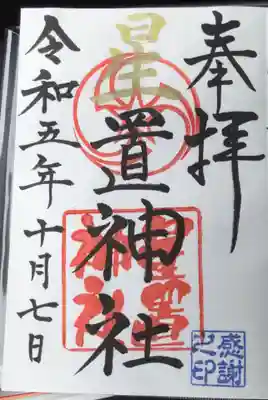 奉拝
星置神社
令和五年十月七日
星置神社
感謝之印